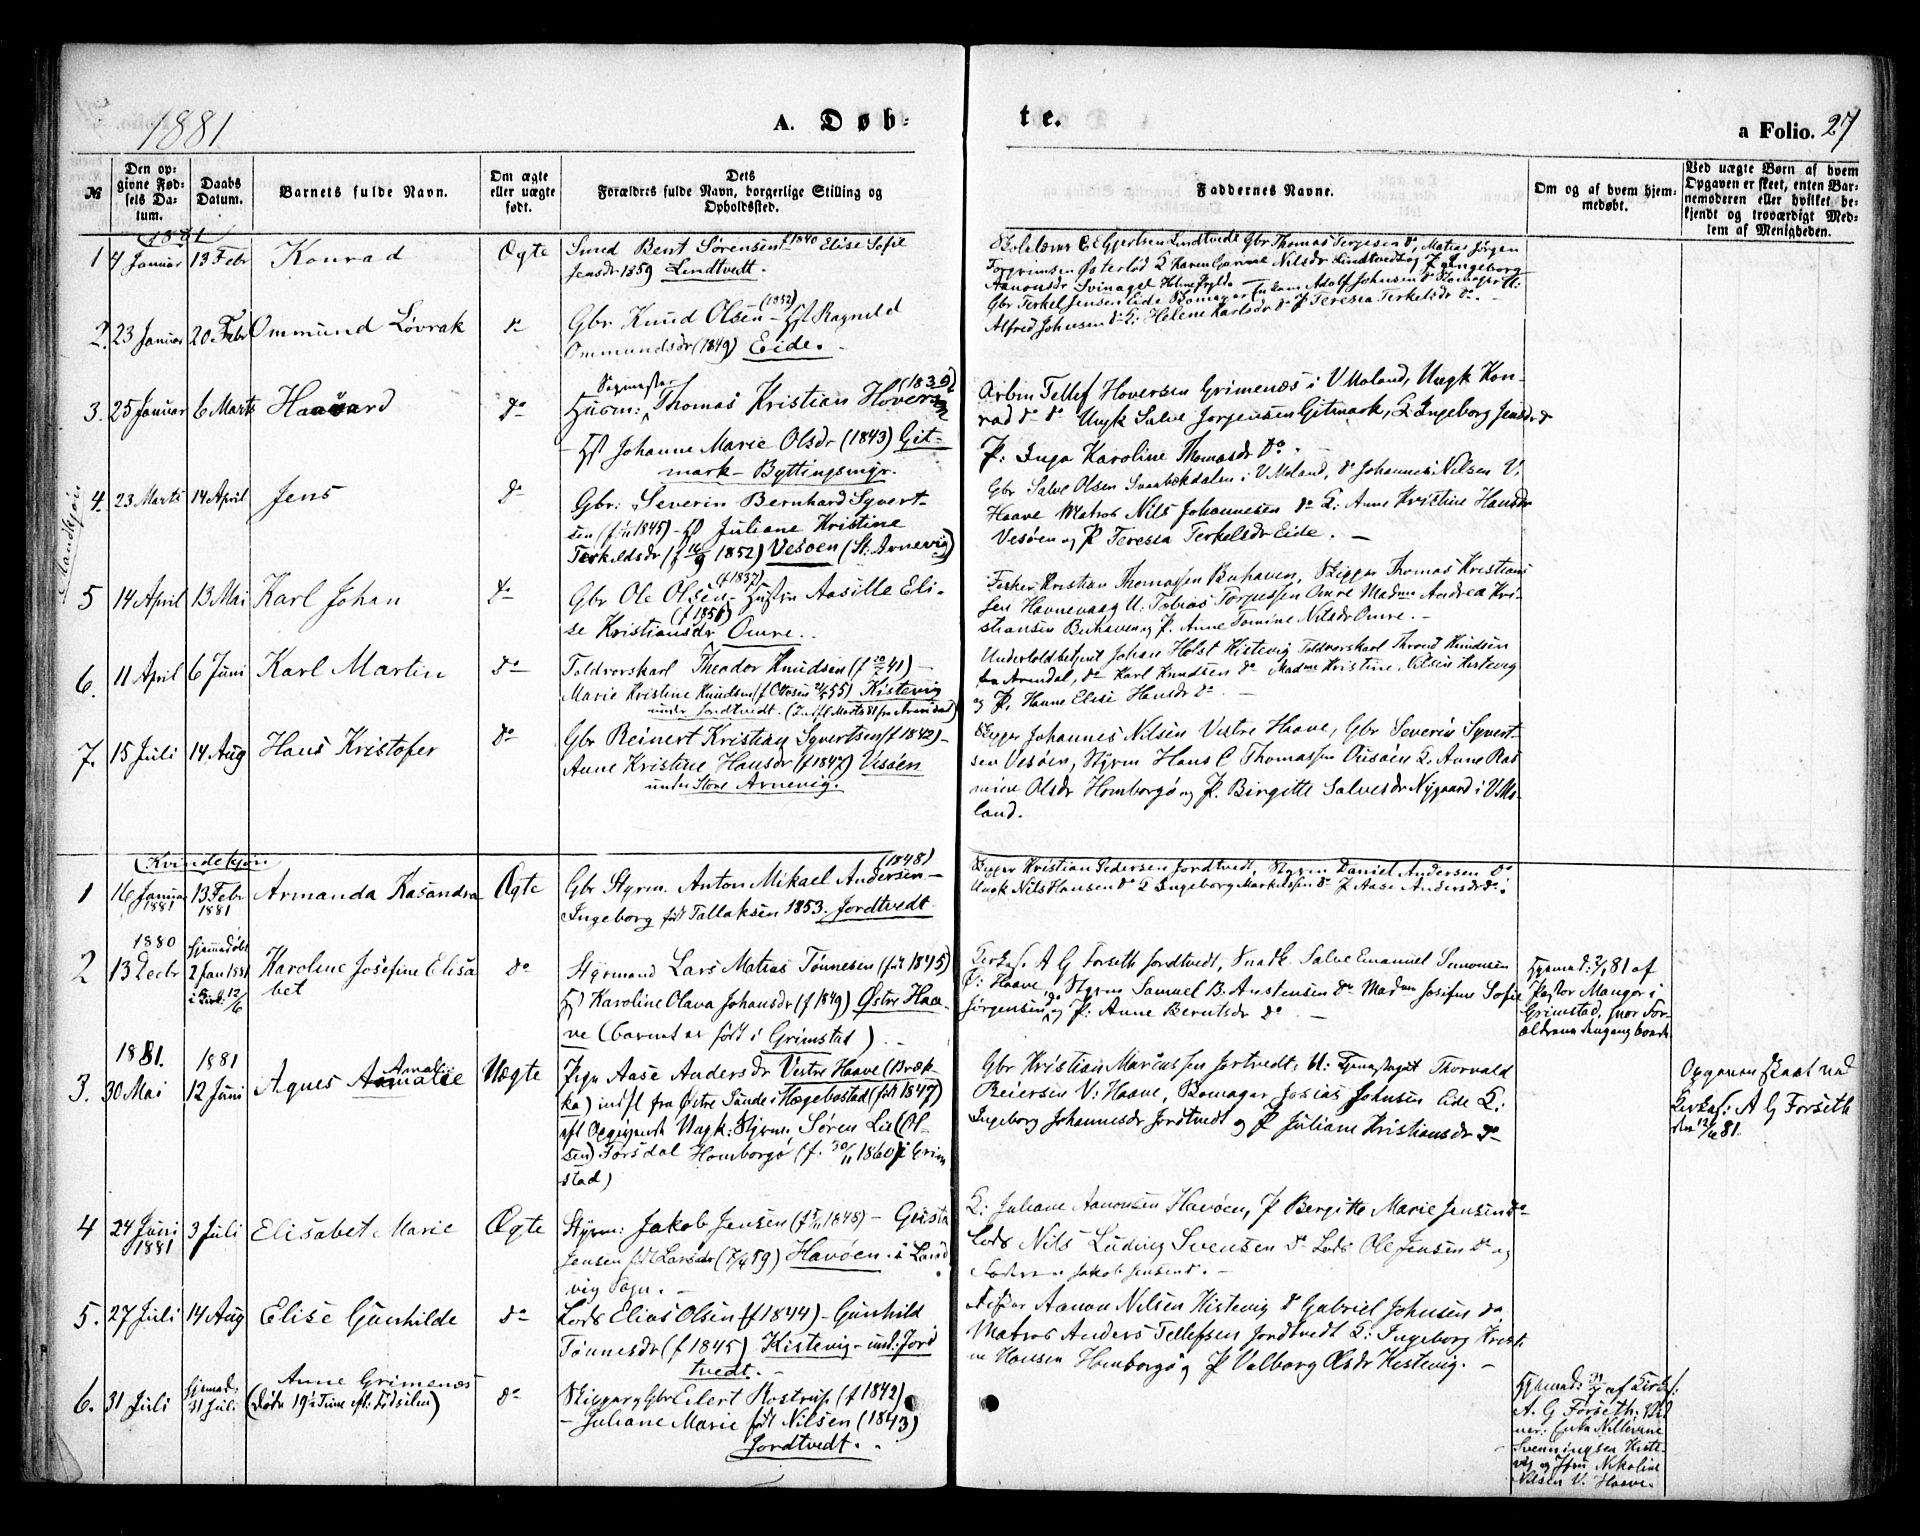 1881
A. Døb-
te.
a Folio. 27
№
Den opgivne Fødsels Datum.
Daabs Datum.
Barnets fulde Navn.
Om ægte eller uægte født.
Dets Forældres fulde Navn, borgerlige Stilling og Opholdssted.
Faddernes Navne.
Om og af hvem hjemmedøbt.
Ved uægte Børn af hvem Opgaven er skeet, enten Barnemoderen eller hvilket bekjendt og troværdigt Medlem af Menigheden.
Mandkjøn
1881
1 4 Januar 13 Febr Konrad Ægte
Smed Bent Sørensen f 1840 Elise Sofie
Jensdr 1859 Lindtvedt.
Skolelærer E Gjertsen Lindtvedt Gbr Thomas Terjesen do, Matias Jørgen
Torgrimsen Østerlod K. Karen Nilsdr Lindtvedt og P Ingeborg
Aanonsdr Svinaget
2. 23 Januar 20 Febr Ommund Løvrak do
Gbr. Knud Olsen (1852) – Hst Ragnild
Ommundsdr (1849) Eide.
Gbr Terkel Jensen Eide Bomager Adolf Johnsen do
Alfred Johnsen do K: Helene Karlsdr do P Teresia Terkelsdr do. -
3. 25 Januar 6 Marts Haavard do
Husm: Sagmester Thomas Kristian Hoversen (1839)
– Hst Johanne Marie Olsdr (1843) Git-
mark – Byttingsmyr.
Arbm Tellef Hoversen Grimenes i V Moland, Ungk Kon-
rad do do Ungk Salve Jørgensen Gitmark, K. Ingeborg Jensdr do
P: Inga Karoline Thomasdr do.
4. 23 Marts 14 April Jens do
Gbr: Severin Bernhard Syvert-
sen (f 1845) – H Juliane Kristine
Terkeldsdr (f 16/9 1852) Vesøen (St: Arnevig)
Gbr Salve Olsen Svaabækdalen i V. Moland, do Johannes Nilsen V.
Haave Matros Nils Johannesen do K: Anne Kristine Hansdr
Vesøen og P Teresia Terkelsdr Eide. –
5 14 April 13 Mai Karl Johan do
Gbr Ole Olsen (f 1837) – Hustru Aasille Eli-
se Kristiansdr (f 1851) Omre..
Fisker Kristian Thomassen Buhaven, Skipper Thomas Kristian-
sen Havnevaag U: Tobias Torjussen Omre Madm Andrea Kri-
stiansen Buhaven og P. Anne Tomine Nilsdr Omre. –
6. 11 April 6 Juni Karl Martin do
Toldvorskarl Theodor Knudsen (f 41) –
Marie Kristine Knudsen (f Olsen 55) Kistevig
under Jordtvedt. (Indfl Marts 81 fra Arendal)
Undertoldbetjent Johan Holst Kistevig Toldvorskarl Thrond Knudsen
Arendal, do Karl Knudsen do Madm Kristine Nilsen Kistevig
og P. Hanne Elise Hansdr do. –
7. 15 Juli 14 Aug Hans Kristofer do
Gbr Reinert Kristian Syvertsen (f 1842) –
Anne Kristine Hansdr (f 1847) Vesøen
under Store Arnevig.
Skipper Johannes Nilsen Vestre Haave, Gbr Severin Syvert-
sen Vesøen, Styrm Hans C Thomassen Ousøen K. Anne Ras
mine Olsdr Homborgø og P. Birgitte Salvesdr Nygaard i V. Mo-
land.
Kvindekjøn
1 16 Januar 1881 13 Febr 1881 Armanda Kasandra Ægte
Gbr Styrm. Anton Mikael Andersen (1848) –
Ingeborg født Tallaksen 1853. Jordtvedt
Skipper Kristian Pedersen Jordtvedt, Styrm Daniel Andersen do
Ungk Nils Hansen do K Ingeborg Markussen do P Aase Andersdr do.
2 1880 13 Decbr Hjemmedøbt 2 Jan 1881 i Kirk: 12/6 Karoline Josefine Elisa
bet do
Styrmand Lars Matias Tønnesen (født 1845)
Hst Karoline Olava Johansdr (f 1849) Østre Haa-
ve (barnet er født i Grimstad). –
Kirks. A G Forseth Jordtvedt, Snedk. Salve Emanuel Simonsen
Ø: Haave, Styrm Samuel B. Austensen do Madm Josefine Sofie
Jørgensen do og P: Anne Berntsdr do. –
Hjemmed: 2/1 81 af
Pastor Manger i
Grimstad, hvor For-
ældrene dengang boede
3. 1881. 30 Mai 1881 12 Juni Agnes Amalie Uægte
Pige Aase Andersdr Vestre Haave (Bræk-
ka) indfl fra Østre Sande i Hægebostad (født 1847)
eft Opgivende Ungk: Styrm: Søren Lie (Ol-
sen) Torsdal Homborgø (f. 30/11 1860 i Grim-
stad)
Gbr Kristian Marcussen Jortvedt, U: Thorvald
Reiersen V: Haave, Bomager Josias Johnsen Eide K:
Ingeborg Johannesdr Jordtvedt og P Juliane Kristiansdr do
Opgaven skeet ved
Kirks: A G Forseth
den 12/6 81.
4 24 Juni 1881 3 Juli Elisabet Marie Ægte
Styrm: Jakob Jensen (f 5/11 1848) – Gusta
Jensen født Larsdr (7/4 59) Havøen i Land
vig Sogn. –
K: Juliane Aanonsen Havøen, P Bergitte Marie Jensen do
Lods Nils Ludvig Svensen do Lods Ole Jensen do og
Faderen Jakob Jensen d. –
5. 27 Juli 14 Aug Elise Gunhilde do
Lods Elias Olsen (f 1844) – Gunhild
Tønnesdr (f 1845) Kistevig – und: Jord
tvedt. –
Fisker Aanon Nilsen Kistevig do Gabriel Johnsen do
Matros Anders Tellefsen Jordtvedt K: Ingeborg Kristi-
ne Hansen Homborgø og P Valborg Olsdr Kistevig. –
6. 31 Juli Hjemmed: 31 Juli Anne Grimenæs
(døde 19½ Time eft: Fødselen) do
Skipper og Gbr Eilert Rostrup (f 1842)
– Juliane Marie født Nilsen (1843)
Jordtvedt. .
Hjemmed: 31/7 af Kirks:
A. G Forseth.
Enke Nilterine
Svenningsen Kiste-
vig og Nikoline
Nilsen V. Haave.